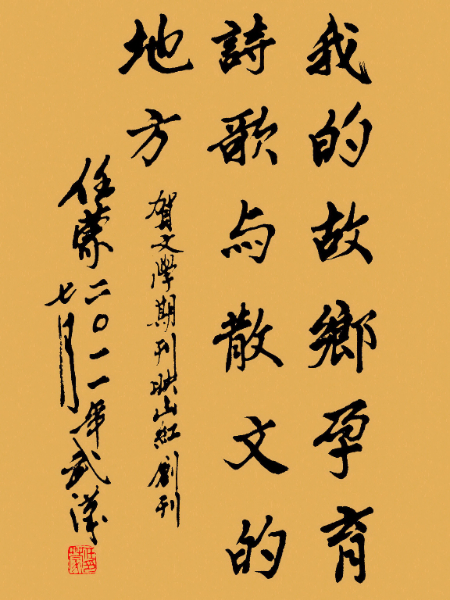 我的故鄉孕育
詩歌与散文的
地方
賀文學期刊映山紅創刊
任蒙二〇一一年武漢
七月